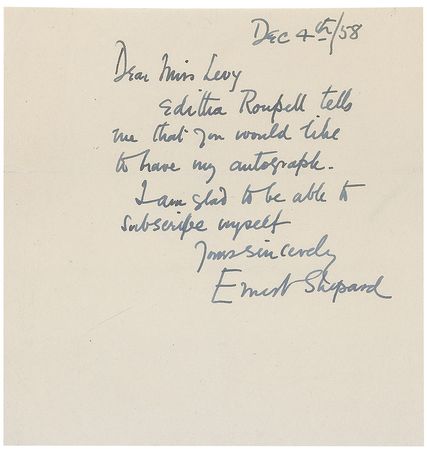 Dec 4th/58
Dear Miss Levy
Editha Roupell tells
me that you would like
to have my autograph.
I am glad to be able to
subscribe myself
Yours sincerely
Ernest Shepard